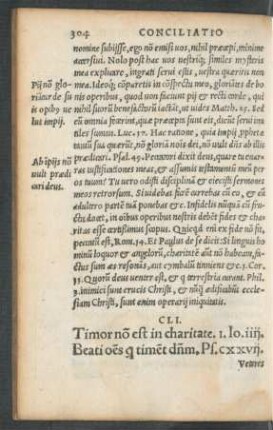 304 CONCILIATIO
nomine subijsse, ego nõ emisi uos, nihil præcepi, minime
accersiui. Nolo post hac uos uestrisq; similes mysteria
mea explicare, ingrati serui estis, uestra quæritis non
mea. Ideoq; cõparetis in cõspectu meo, gloriãtes de bo
nis operibus, quod uon faciunt pij & recti corde, qui
nihil suorũ benefactorũ iactãt, ut uides Matth. 25. sed
cũ omnia fecerint, quæ præceptũ sunt eis, dicũt serui inu
tiles sumus. Luc. 17. Hac ratione, quia impij
tuum sua querũt, nõ gloriã nois dei, nõ uult diis ab illis
prædicari. Psal. 49. Peccatori dixit deus, quare tu enar-
ras iustificationes meas, & assumis testamentũ meũ per
os tuum? Tu uero odisti disciplinã & eiecisti sermones
meos retrorsum. Si uidebas furẽ currebas cũ eo, & cũ
adulteris partẽ tuã ponebas &c. Infidelis nunquã cũ fru
ctu docet, in oibus operibus nostris debẽt fides & chari-
tas esse
peccatũ est, Rom. 14. Et Paulus de se dicit: Si linguis ho
minũ loquor & angelorũ, charitatẽ aũt nõ habeam, fa-
ctus sum æs resonãs, aut cymbalũ tinniens &c. 1. Cor.
13. Quorũ deus uenter est, & q terrestria querũt. Phil.
3. inimici sunt crucis Christi, & nũq ædificabũt eccle-
siam Christi, sunt enim operarij iniquitatis.
Pij nõ glo-
tur de sa
is opibus ue
lut impij.
Ab impijs nõ
uult prædi
cari deus.
CLI.
Timor nõ est in charitate. 1. Io. iiij.
Beati oẽs q timẽt dñm, Ps. cxxvij.